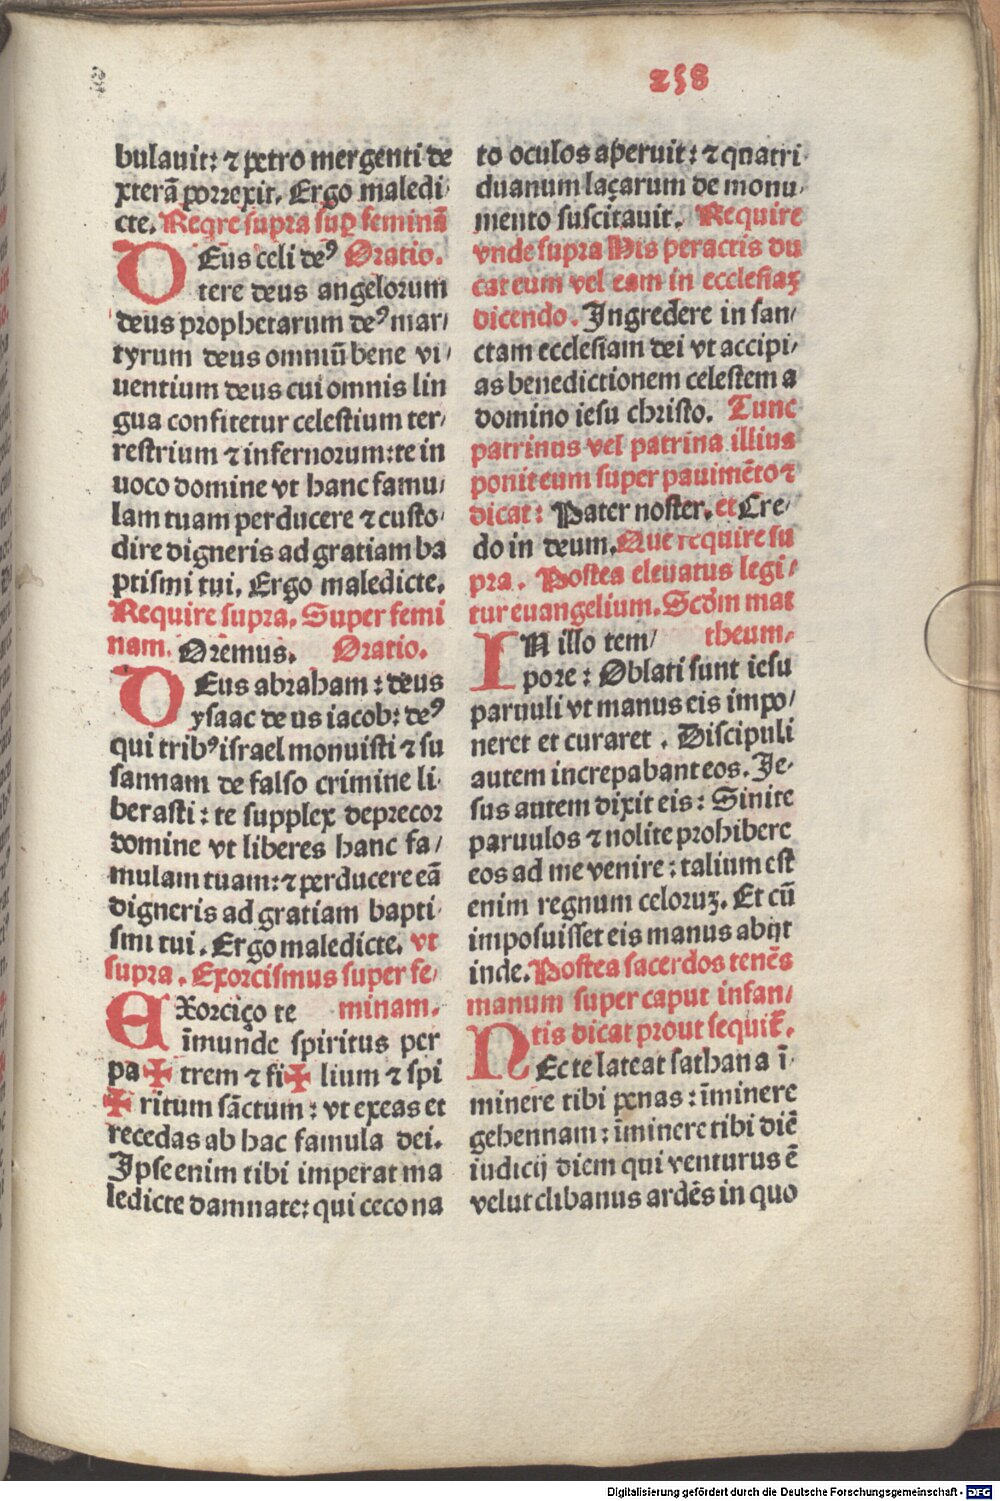 258
bulauit: ⁊ petro mergenti de
xterā porrexit. Ergo maledi
cte. Reqre supra suꝑ feminā
DEus celi deꝰ Oratio.
tere deus angelorum
deus prophetarum deꝰ mar/
tyrum deus omniū bene vi/
uentium deus cui omnis lin
gua confitetur celestium ter/
restrium ⁊ infernorum: te in
uoco domine vt hanc famu/
lam tuam perducere ⁊ custo/
dire digneris ad gratiam ba
ptismi tui. Ergo maledicte.
Require supra. Super femi
nam. Oremus. Oratio.
DEus abraham: deus
ysaac deus iacob: deꝰ
qui tribꝰ israel monuisti ⁊ su
sannam de falso crimine li/
berasti: te supplex deprecor
domine vt liberes hanc fa/
mulam tuam: ⁊ perducere eā
digneris ad gratiam bapti/
smi tui. Ergo maledicte. vt
supra. Exorcismus super fe/
EXorciço te minam.
īmunde spiritus per
pa✠trem ⁊ fi✠lium ⁊ spi
✠ritum sāctum: vt exeas et
recedas ab hac famula dei.
Ipse enim tibi imperat ma
ledicte damnate: qui ceco na
to oculos aperuit: ⁊ quatri/
duanum laçarum de monu/
mento suscitauit. Require
vnde supra His peractis du
cat eum vel eam in ecclesiaꝫ
dicendo. Ingredere in san/
ctam ecclesiam dei vt accipi/
as benedictionem celestem a
domino iesu christo. Tunc
patrinus vel patrina illius
ponit eum super pauimēto ⁊
dicat: Pater noster. et Cre/
do in deum. Que require su
pra. Postea eleuatus legi/
tur euangelium. Scdm mat
IN illo tem/ theum.
pore: Oblati sunt iesu
paruuli vt manus eis impo/
neret et curaret. Discipuli
autem increpabant eos. Je/
sus autem dixit eis: Sinite
paruulos ⁊ nolite prohibere
eos ad me venire: talium est
enim regnum celoruꝫ. Et cū
imposuisset eis manus abijt
inde. Postea sacerdos tenēs
manum super caput infan/
tis dicat prout sequit̄.
NEc te lateat sathana ī/
minere tibi penas: īminere
gehennam: īminere tibi diē
iudicij diem qui venturus ē
velut clibanus ardēs in quo
Digitalisierung gefördert durch die Deutsche Forschungsgemeinschaft - DFG